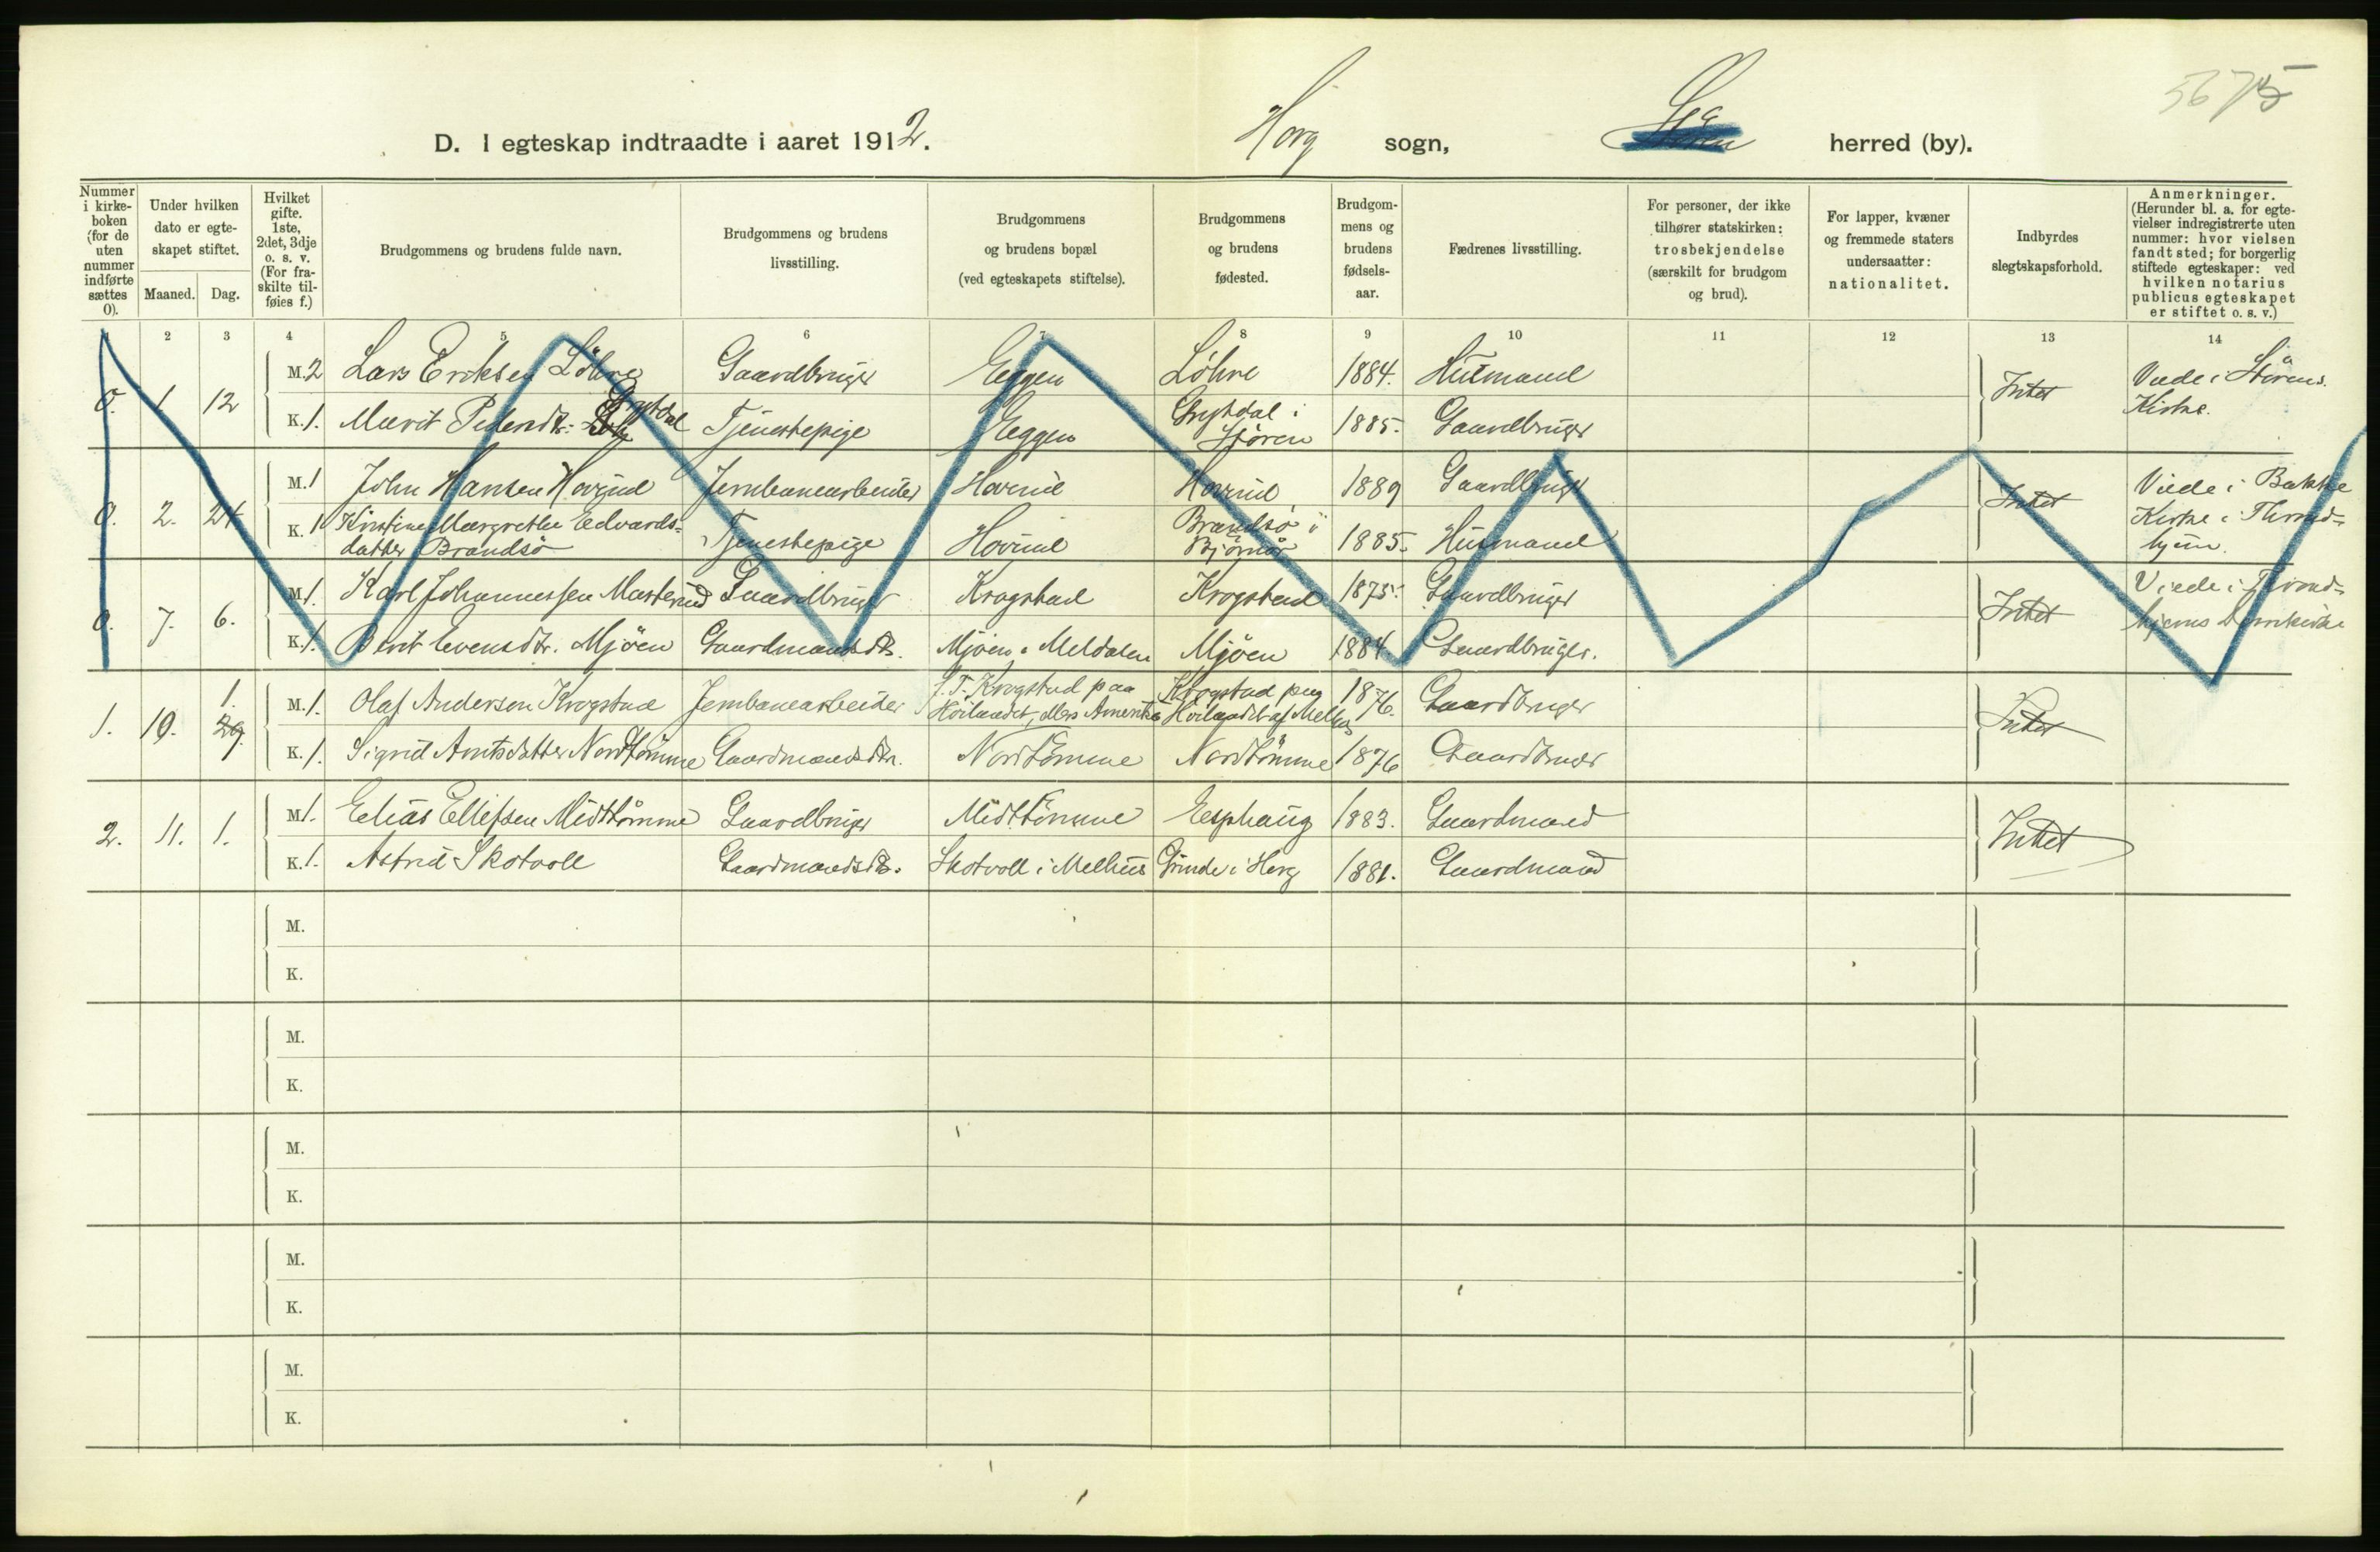 5675
D. I egteskap indtraadte i aaret 1912.
Horg sogn, herred (by).
Nummer i kirke-boken (for de uten nummer indførte sættes 0).
Under hvilken dato er egte-skapet stiftet.
Maaned. Dag.
Hvilket gifte. 1ste, 2det, 3dje o. s. v. (For fra-skilte til-føies f.)
Brudgommens og brudens fulde navn.
Brudgommens og brudens livsstilling.
Brudgommens og brudens bopæl (ved egteskapets stiftelse).
Brudgommens og brudens fødested.
Brudgom-mens og brudens fødsels-aar.
Fædrenes livsstilling.
For personer, der ikke tilhører statskirken: trosbekjendelse (særskilt for brudgom og brud).
For lapper, kvæner og fremmede staters undersaatter: nationalitet.
Indbyrdes slegtskapsforhold.
Anmerkninger. (Herunder bl. a. for egte-vielser indregistrerte uten nummer: hvor vielsen fandt sted; for borgerlig stiftede egteskaper: ved hvilken notarius publicus egteskapet er stiftet o. s. v.)
1 2 3 4 5 6 7 8 9 10 11 12 13 14
0. 1. 12 M. 2 Lars Eriksen Löhre Gaardbruger Eggen Löhre 1884. Husmand Intet Viede i Störens Kirke.
K. 1. Marit Pedersdtr. Grytdal Tjenestepige Eggen Grytdal i Stören 1885. Gaardbruger
0. 2. 24 M. 1 John Hansen Hovind Jernbanearbeider Hovind Hovind 1889 Gaardbruger Intet Viede i Bakke Kirke i Thrond-hjem.
K. 1 Kirstine Margrethe Edvards-datter Brandsö Tjenestepige Hovind Brandsö i Björnör 1885. Husmand
0. 7. 6. M. 1. Karl Johannessen Krogstad Krogstad 1875. Gaardbruger Intet Viede i Thrond-hjems Domkirke
K. 1. Berit Evensdtr. Mjöen Gaardmandsdtr. Mjöen i Meldalen Mjöen 1884. Gaardbruger.
1. 10. 1. 29. M. 1. Olaf Andersen Krogstad Jernbanearbeider f. T. Krogstad paa Hölandet, ellers Amerika Krogstad paa Hölandet af Melhus 1876. Gaardbruger Intet
K. 1. Sigrid Arntsdatter Nordtömme Gaardmandsdtr. Nordtömme Nordtömme 1876 Gaardbruger
2. 11. 1. M. 1. Elias Ellefsen Midttömme Gaardbruger Midttömme Esphaug 1883. Gaardmand Intet
K. 1. Astrid Skotvoll Gaardmandsdtr. Skotvoll i Melhus Grinde i Horg 1881. Gaardmand
M.
K.
M.
K.
M.
K.
M.
K.
M.
K.